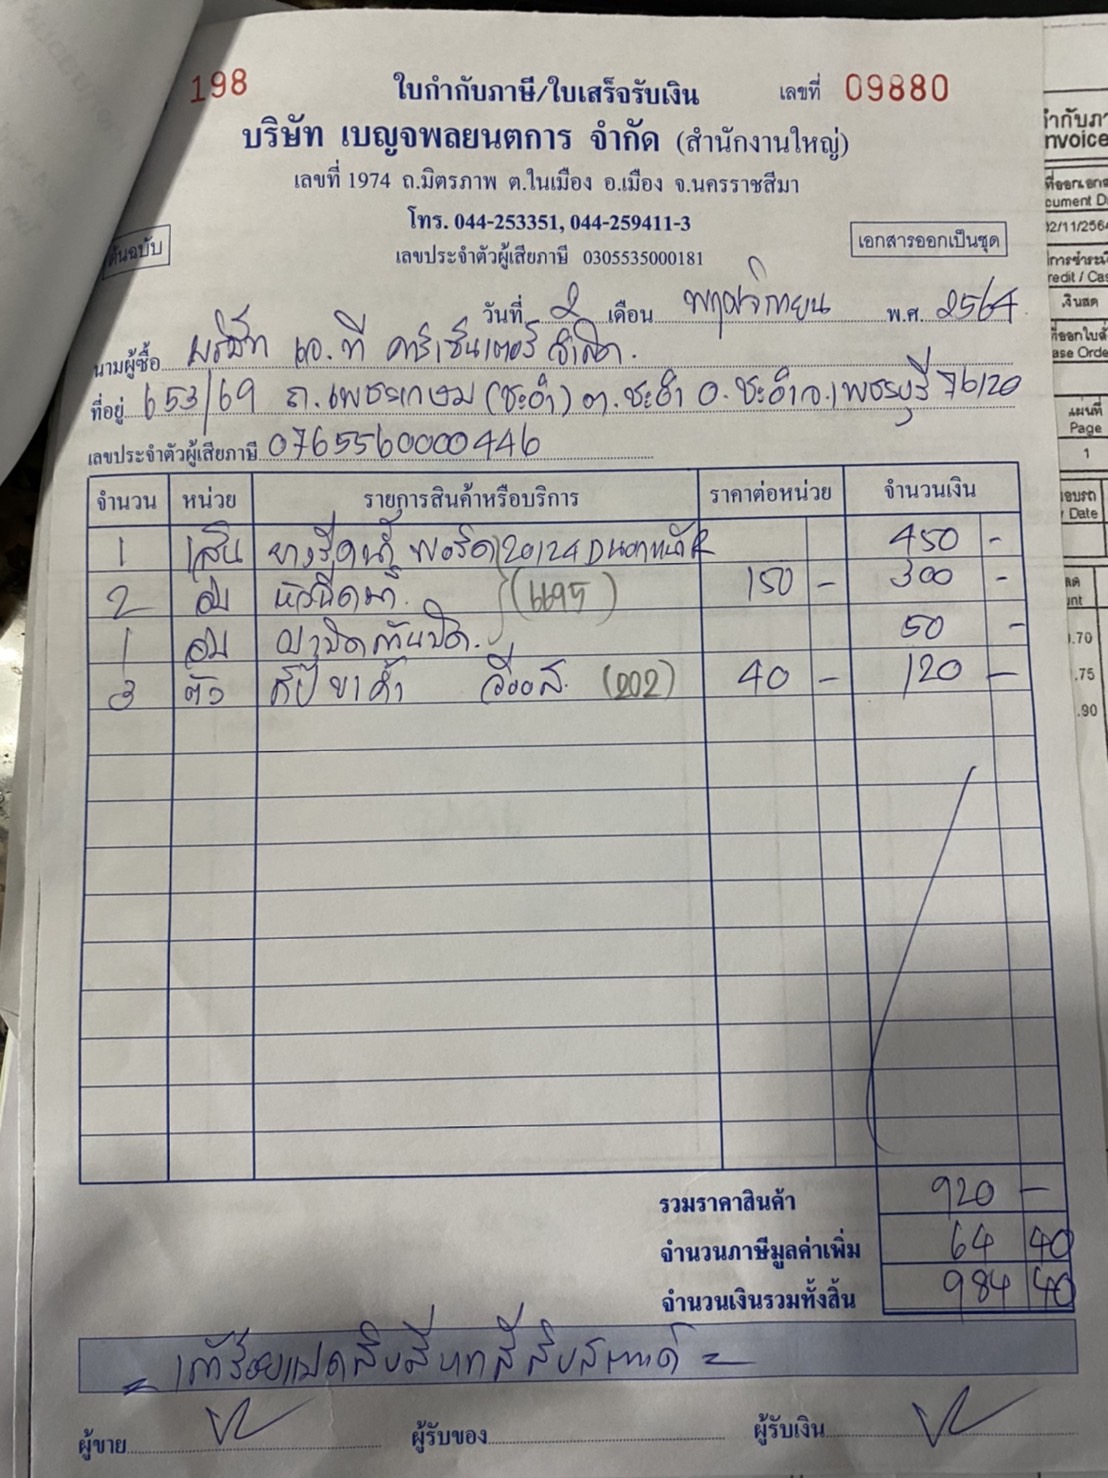 198 ใบกำกับภาษี/ใบเสร็จรับเงิน เลขที่ 09880
บริษัท เบญจพลยนตการ จำกัด (สำนักงานใหญ่)
เลขที่ 1974 ถ.มิตรภาพ ต.ในเมือง อ.เมือง จ.นครราชสีมา
โทร. 044-253351, 044-259411-3
ต้นฉบับ เลขประจำตัวผู้เสียภาษี 0305535000181 เอกสารออกเป็นชุด
วันที่ 2 เดือน พฤศจิกายน พ.ศ. 2564
นามผู้ซื้อ บริษัท เอ.ที คาร์เซ็นเตอร์ จำกัด.
ที่อยู่ 653/69 ถ.เพชรเกษม (ชะอำ) ต.ชะอำ อ.ชะอำ จ.เพชรบุรี 76120
เลขประจำตัวผู้เสียภาษี 0765560000446
จำนวน หน่วย รายการสินค้าหรือบริการ ราคาต่อหน่วย จำนวนเงิน
1 เส้น ยางรีดน้ำ 450 -
2 อัน หัวฉีด (6695) 150 - 300 -
1 อัน 50 -
3 ตัว กิ๊ป (202) 40 - 120 -
รวมราคาสินค้า 920 -
จำนวนภาษีมูลค่าเพิ่ม 64 40
จำนวนเงินรวมทั้งสิ้น 984 40
= เก้าร้อยแปดสิบสี่บาทสี่สิบสตางค์ =
ผู้ขาย ผู้รับของ ผู้รับเงิน
กำกับภา
nvoice
ที่ออกเอกส
cument D
02/11/2564
การชำระเงิ
redit / Cas
เงินสด
ase Orde
แผ่นที่
Page
1
Date
.70
.75
.90